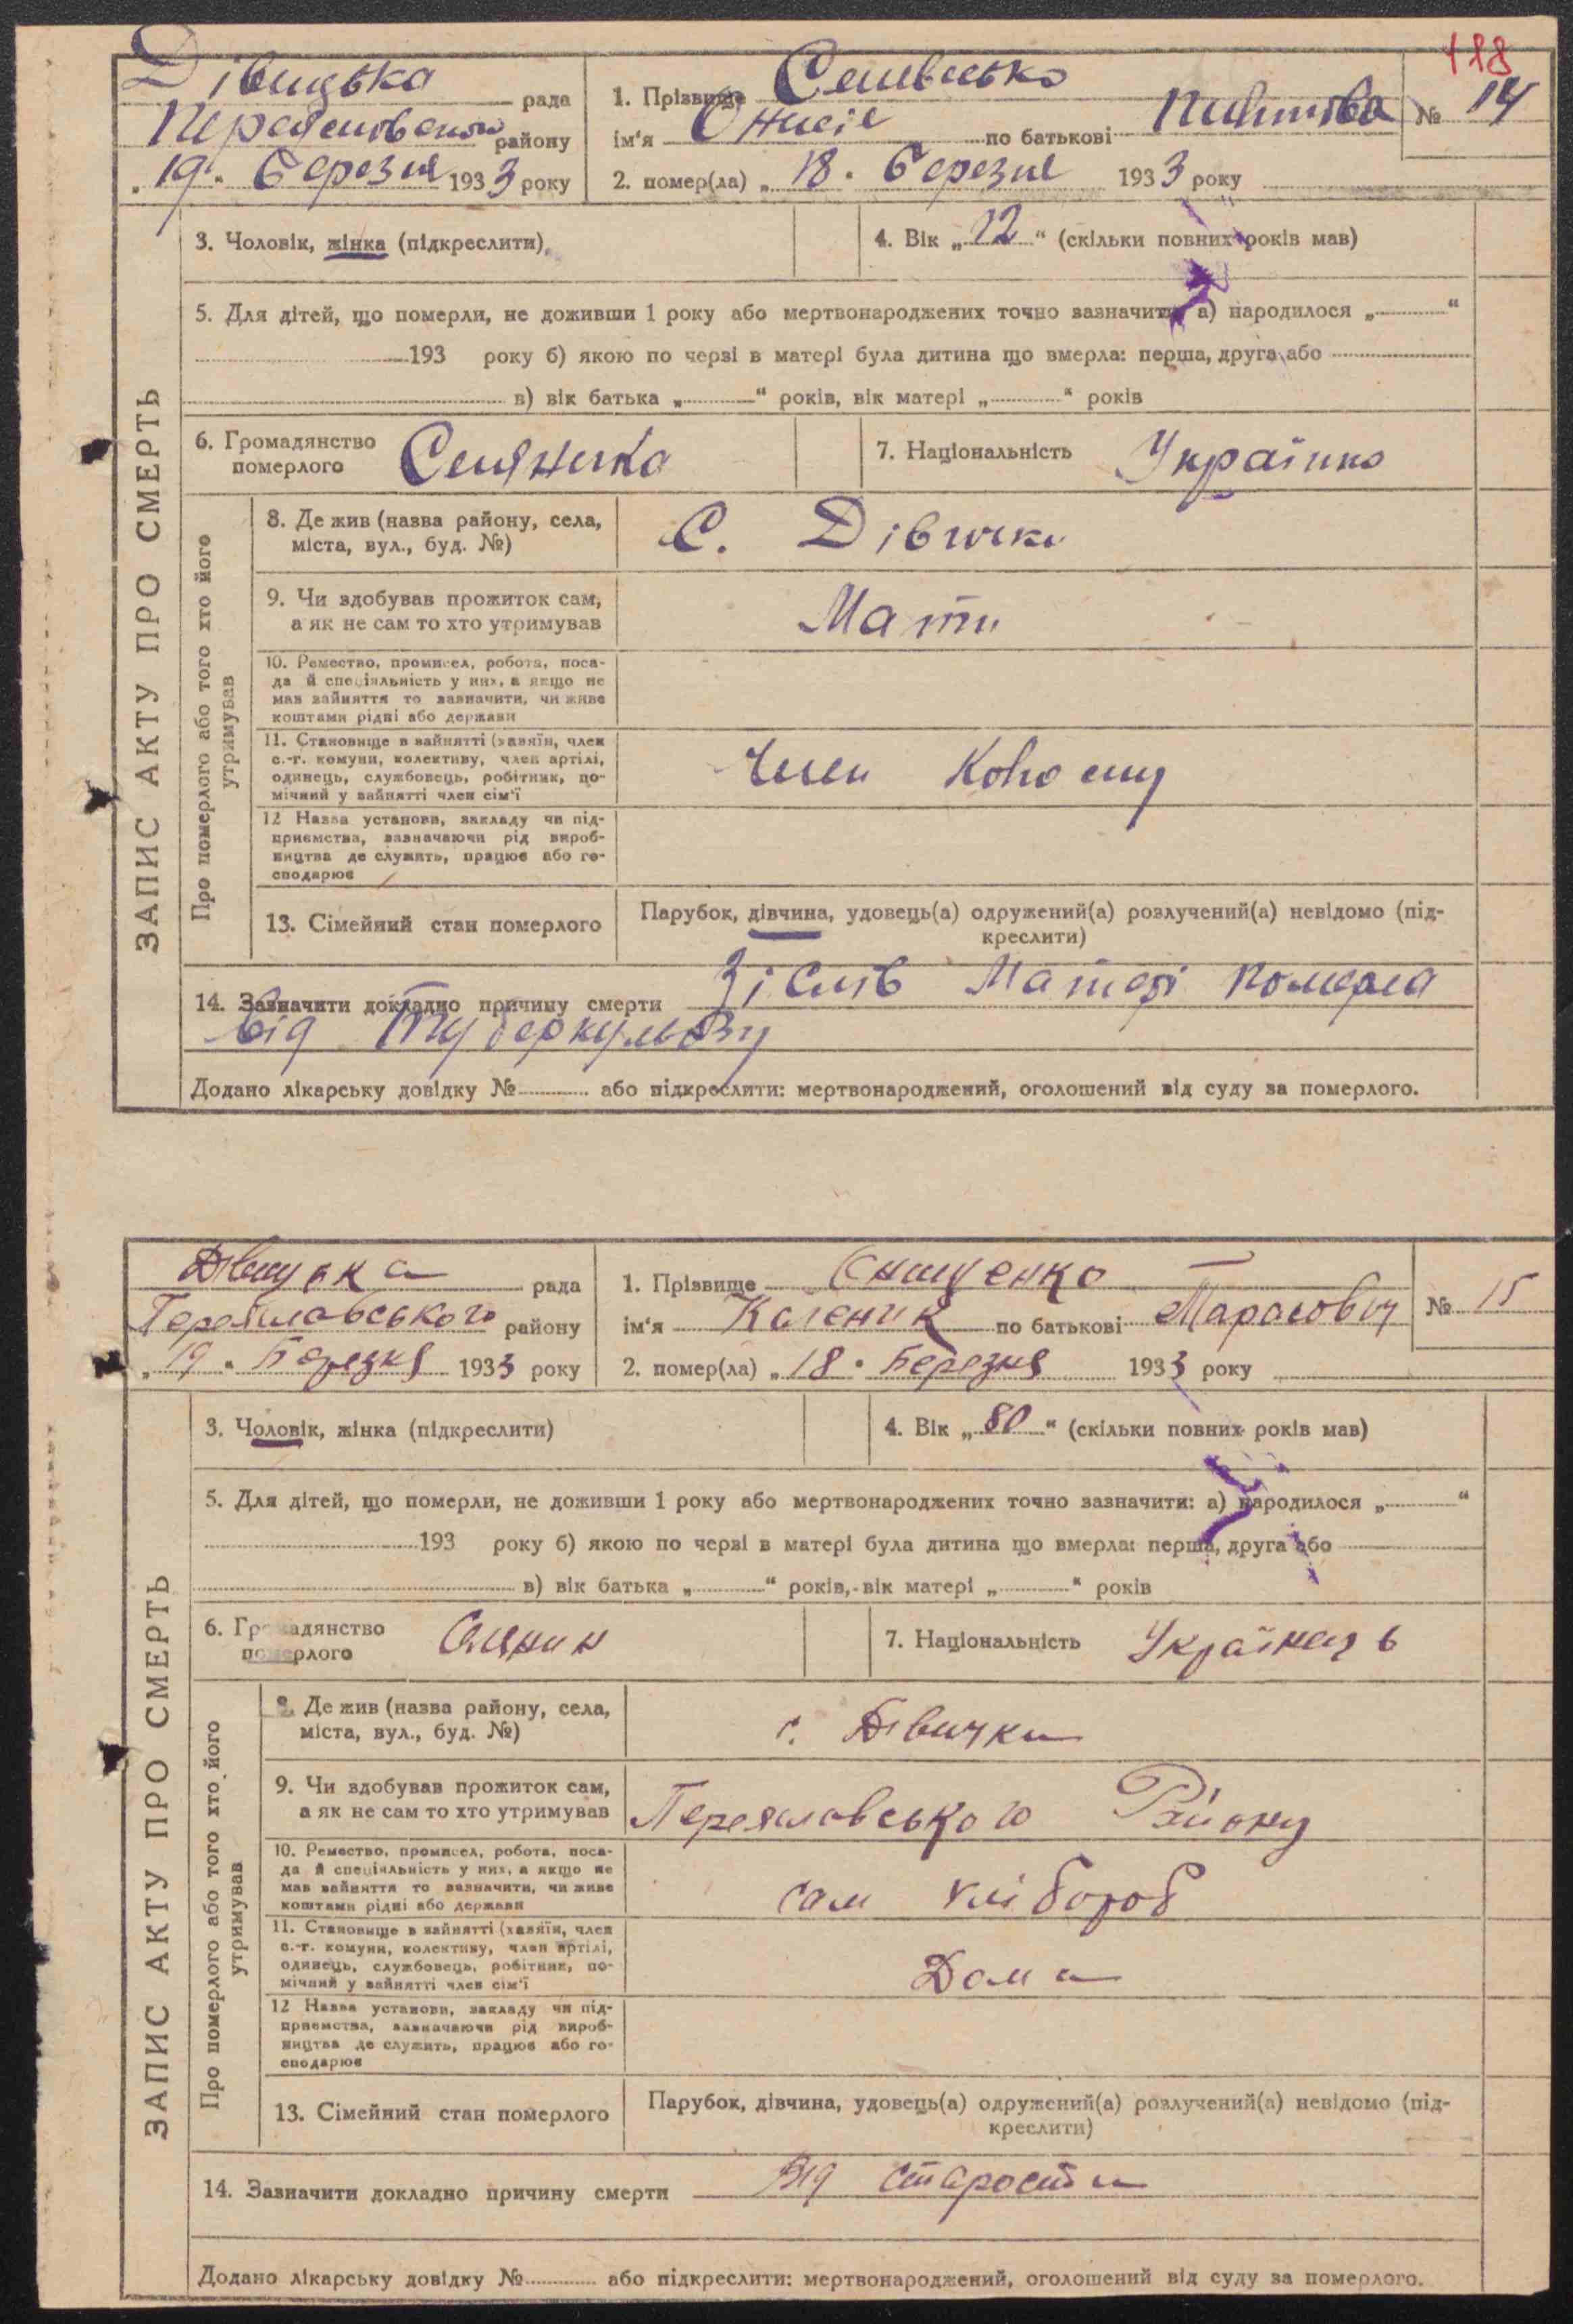 188
Дівицька рада
1. Прізвище
№ 14
району
ім'я Онисія по батькові
„19“ Березня 1933 року
2. помер(ла) „18“ Березня 1933 року
3. Чоловік, жінка (підкреслити)
4. Вік „12“ (скільки повних років мав)
5. Для дітей, що померли, не доживши 1 року або мертвонароджених точно зазначити: а) народилося „ “
193 року б) якою по черзі в матері була дитина що вмерла: перша, друга або
в) вік батька „ “ років, вік матері „ “ років
6. Громадянство померлого Селянка
7. Національність Українка
ЗАПИС АКТУ ПРО СМЕРТЬ
Про померлого або того хто його утримував
8. Де жив (назва району, села,
міста, вул., буд. №)
С. Дівички
9. Чи здобував прожиток сам,
а як не сам то хто утримував
Мати
10. Ремество, промисел, робота, поса-
да й спеціяльність у них, а якщо не
мав зайняття то зазначити, чи живе
коштами рідні або держави
11. Становище в зайнятті (хазяїн, член
с.-г. комуни, колективу, член артілі,
одинець, службовець, робітник, по-
мічний у зайнятті член сім'ї
Член Колгоспу
12 Назва установи, закладу чи під-
приємства, зазначаючи рід вироб-
ництва де служить, працює або го-
сподарює
13. Сімейний стан померлого
Парубок, дівчина, удовець(а) одружений(а) розлучений(а) невідомо (під-
креслити)
14. Зазначити докладно причину смерти Зі слів Матері померла
від Туберкульозу
Додано лікарську довідку № або підкреслити: мертвонароджений, оголошений від суду за померлого.
Дівицька рада
1. Прізвище Онищенко
№ 15
Переяславського району
ім'я Каленик по батькові Тарасович
„19“ Березня 1933 року
2. помер(ла) „18“ Березня 1933 року
3. Чоловік, жінка (підкреслити)
4. Вік „80“ (скільки повних років мав)
5. Для дітей, що померли, не доживши 1 року або мертвонароджених точно зазначити: а) народилося „ “
193 року б) якою по черзі в матері була дитина що вмерла: перша, друга або
в) вік батька „ “ років, вік матері „ “ років
6. Громадянство померлого Селянин
7. Національність Українець
ЗАПИС АКТУ ПРО СМЕРТЬ
Про померлого або того хто його утримував
8. Де жив (назва району, села,
міста, вул., буд. №)
с. Дівички
9. Чи здобував прожиток сам,
а як не сам то хто утримував
Переяславського Району
10. Ремество, промисел, робота, поса-
да й спеціяльність у них, а якщо не
мав зайняття то зазначити, чи живе
коштами рідні або держави
сам хлібороб
11. Становище в зайнятті (хазяїн, член
с.-г. комуни, колективу, член артілі,
одинець, службовець, робітник, по-
мічний у зайнятті член сім'ї
Дома
12 Назва установи, закладу чи під-
приємства, зазначаючи рід вироб-
ництва де служить, працює або го-
сподарює
13. Сімейний стан померлого
Парубок, дівчина, удовець(а) одружений(а) розлучений(а) невідомо (під-
креслити)
14. Зазначити докладно причину смерти Від старости
Додано лікарську довідку № або підкреслити: мертвонароджений, оголошений від суду за померлого.